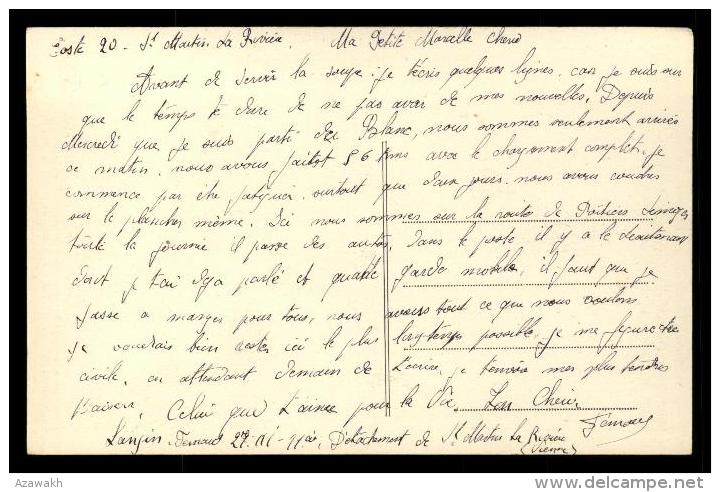 Poste 20 - St Martin La Rivière. Ma Petite Marcelle Cherie
Avant de servir la soupe. je t'écris quelques lignes. car je suis sur
que le temps te dure de ne pas avoir de mes nouvelles. Depuis
Mercredi que je suis parti du Blanc, nous sommes seulement arrivés
ce matin. nous avons fait 56 kms avec le chargement complet. je
commence par être fatigué. surtout que deux jours. nous avons couchés
sur le plancher même. Ici nous sommes sur la route de Poitiers Limoges
toute la journée il passe des autos. Dans le poste il y a le Lieutenant
dont je t'ai deja parlé et quatre garde mobile, il faut que je
fasse a manger pour tous, nous avons tout ce que nous voulons
je voudrais bien rester ici le plus longtemps possible. je me
civile, en attendant demain de t'ecrire. je t'envoie mes plus tendres
Baisers. Celui que t'aime pour la Vie. Ton Cheri
Fernand
Fernand 27e Détachement de St Martin La Rivière
(Vienne)
Azawakh
delcampe.net